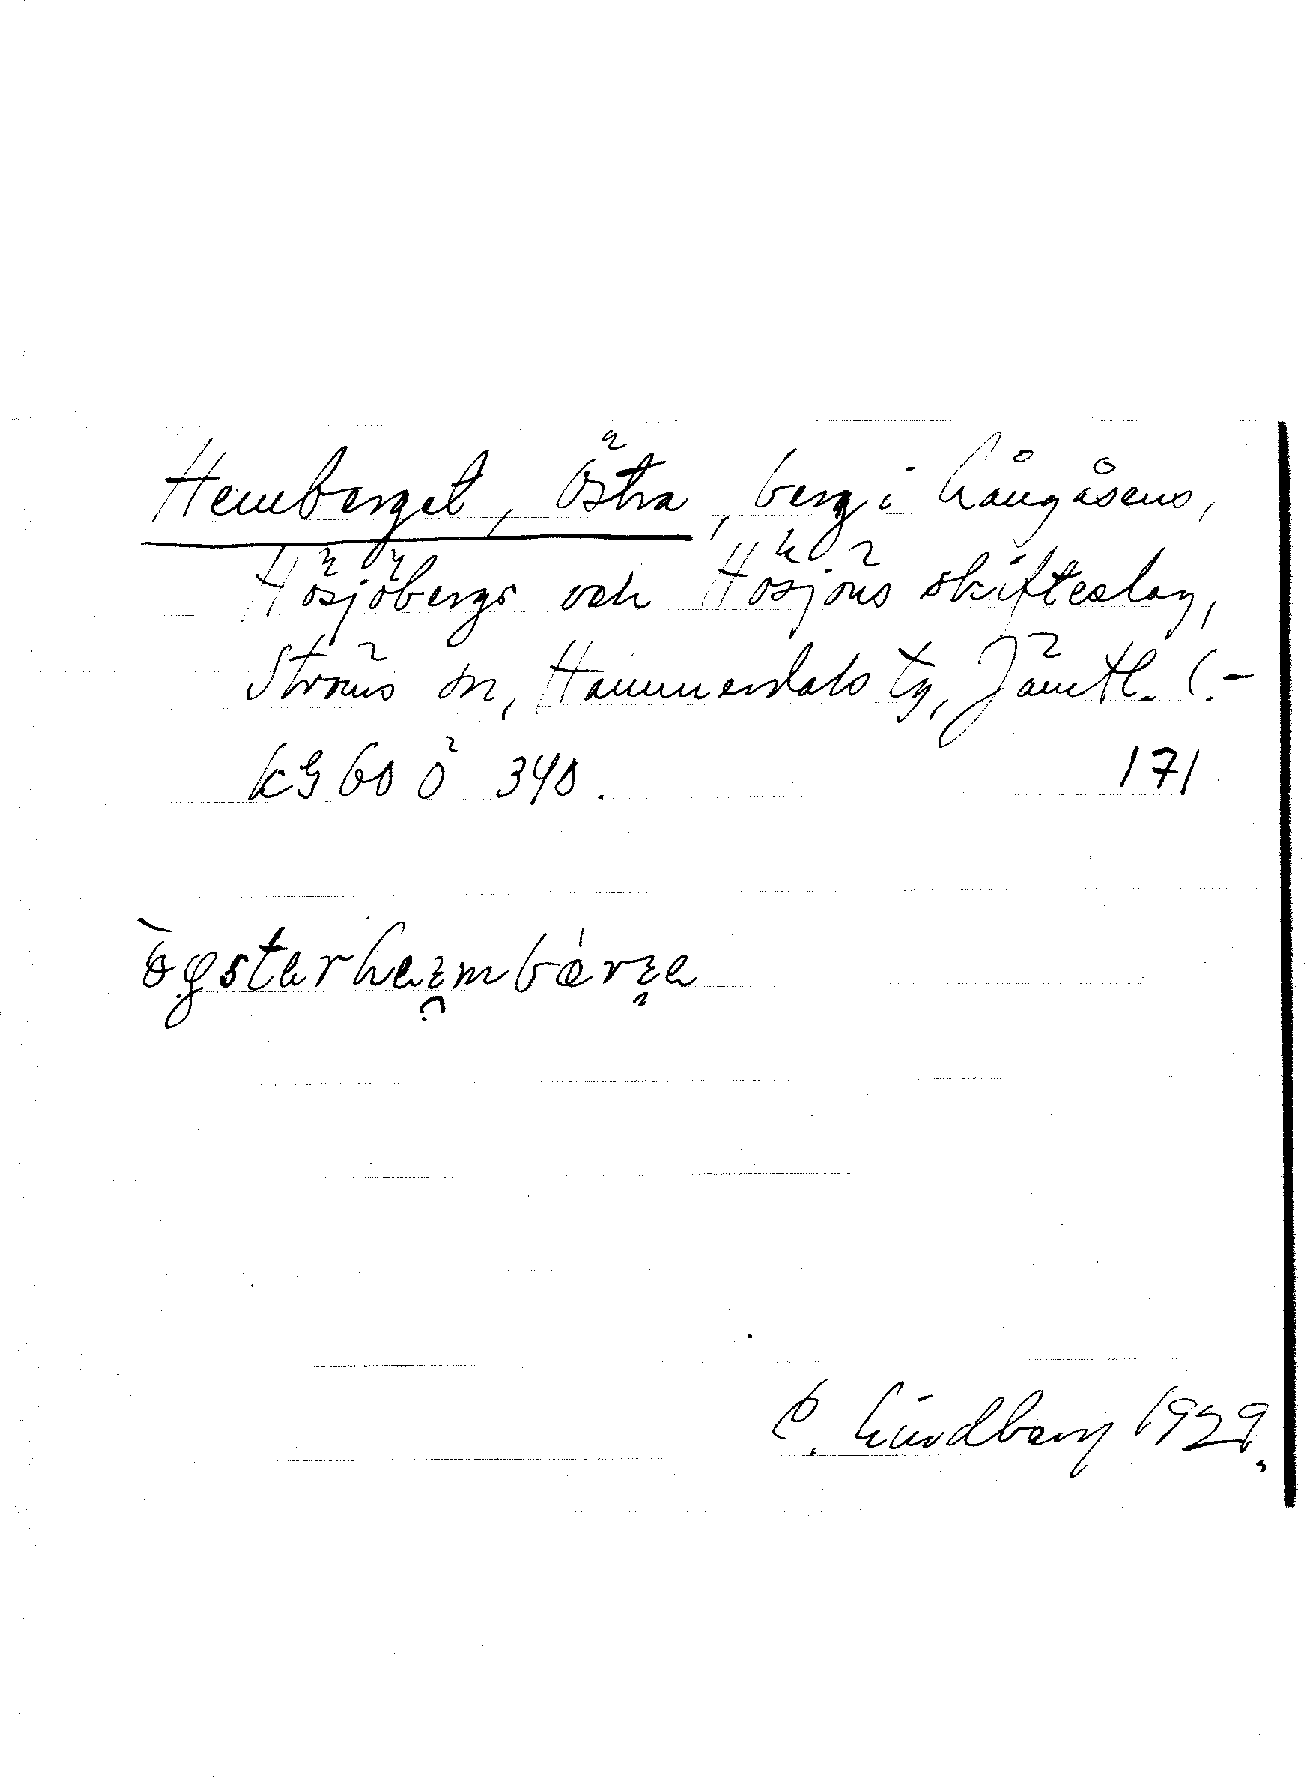 Hemberget, Östra, berg i Långåsens,
Hösjöbergs och Hösjöns skifteslag,
Ströms sn, Hammerdals tg, Jämtl. l.-
kg 60 Ö 340. 171
C. Lindberg 1929.